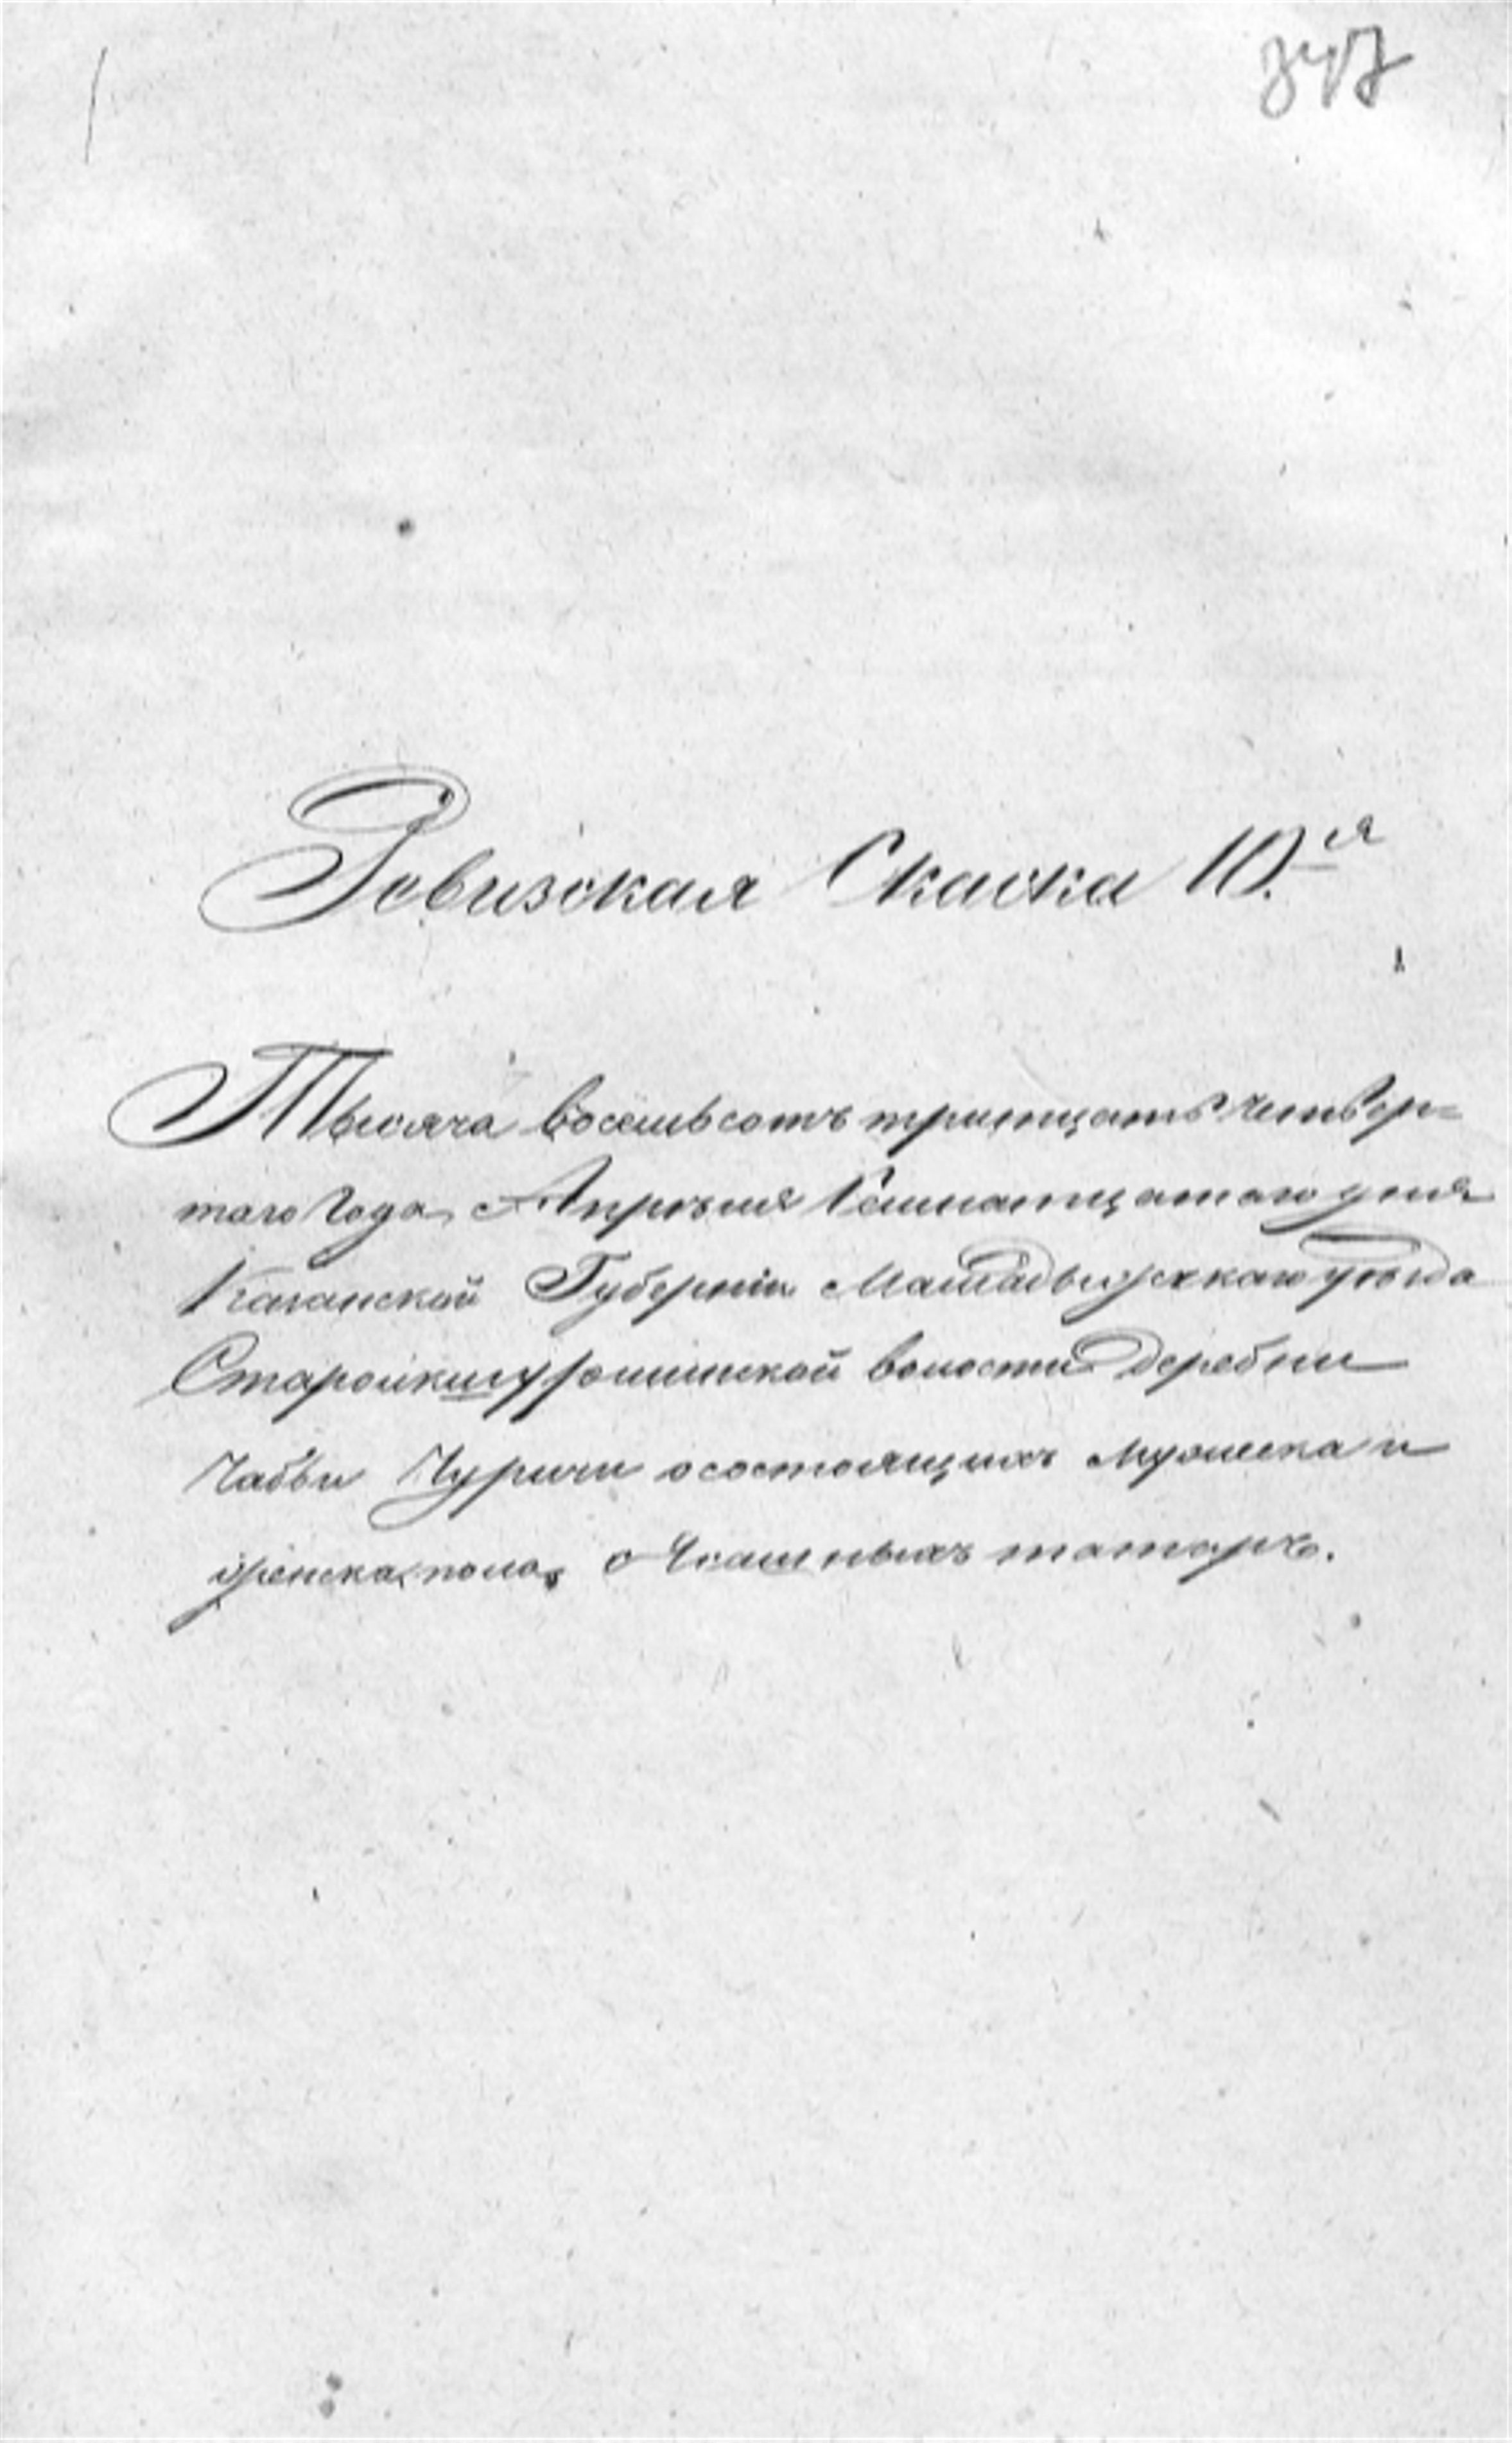 347
Ревизская Скаска 10.ая
Тысяча восемьсотъ тритцать четвер=
таго Года Апрѣля Семнатцатаго дня
Казанской Губерніи Мамадышскаго уѣзда
волости деревни
Чабьи Чурчи о состоящихъ мужеска и
женска пола о Ясашныхъ татаръ.